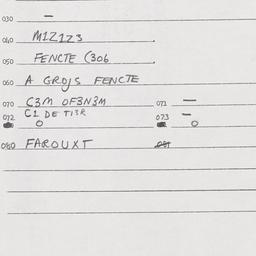 030 —
040 M1Z1Z3 .
050 FENCTE C306 .
060 A GROJS FENCTE
070 C3M OF3N3M 071 —
072 C1 DE TI3R 073 —
0 0
080 FAROUXT